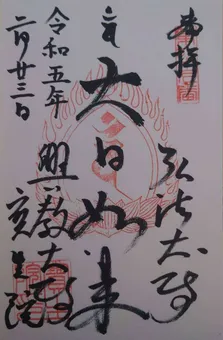 奉拝
弘法大師
大日如来
興教大師
令和五年
二月廿三日